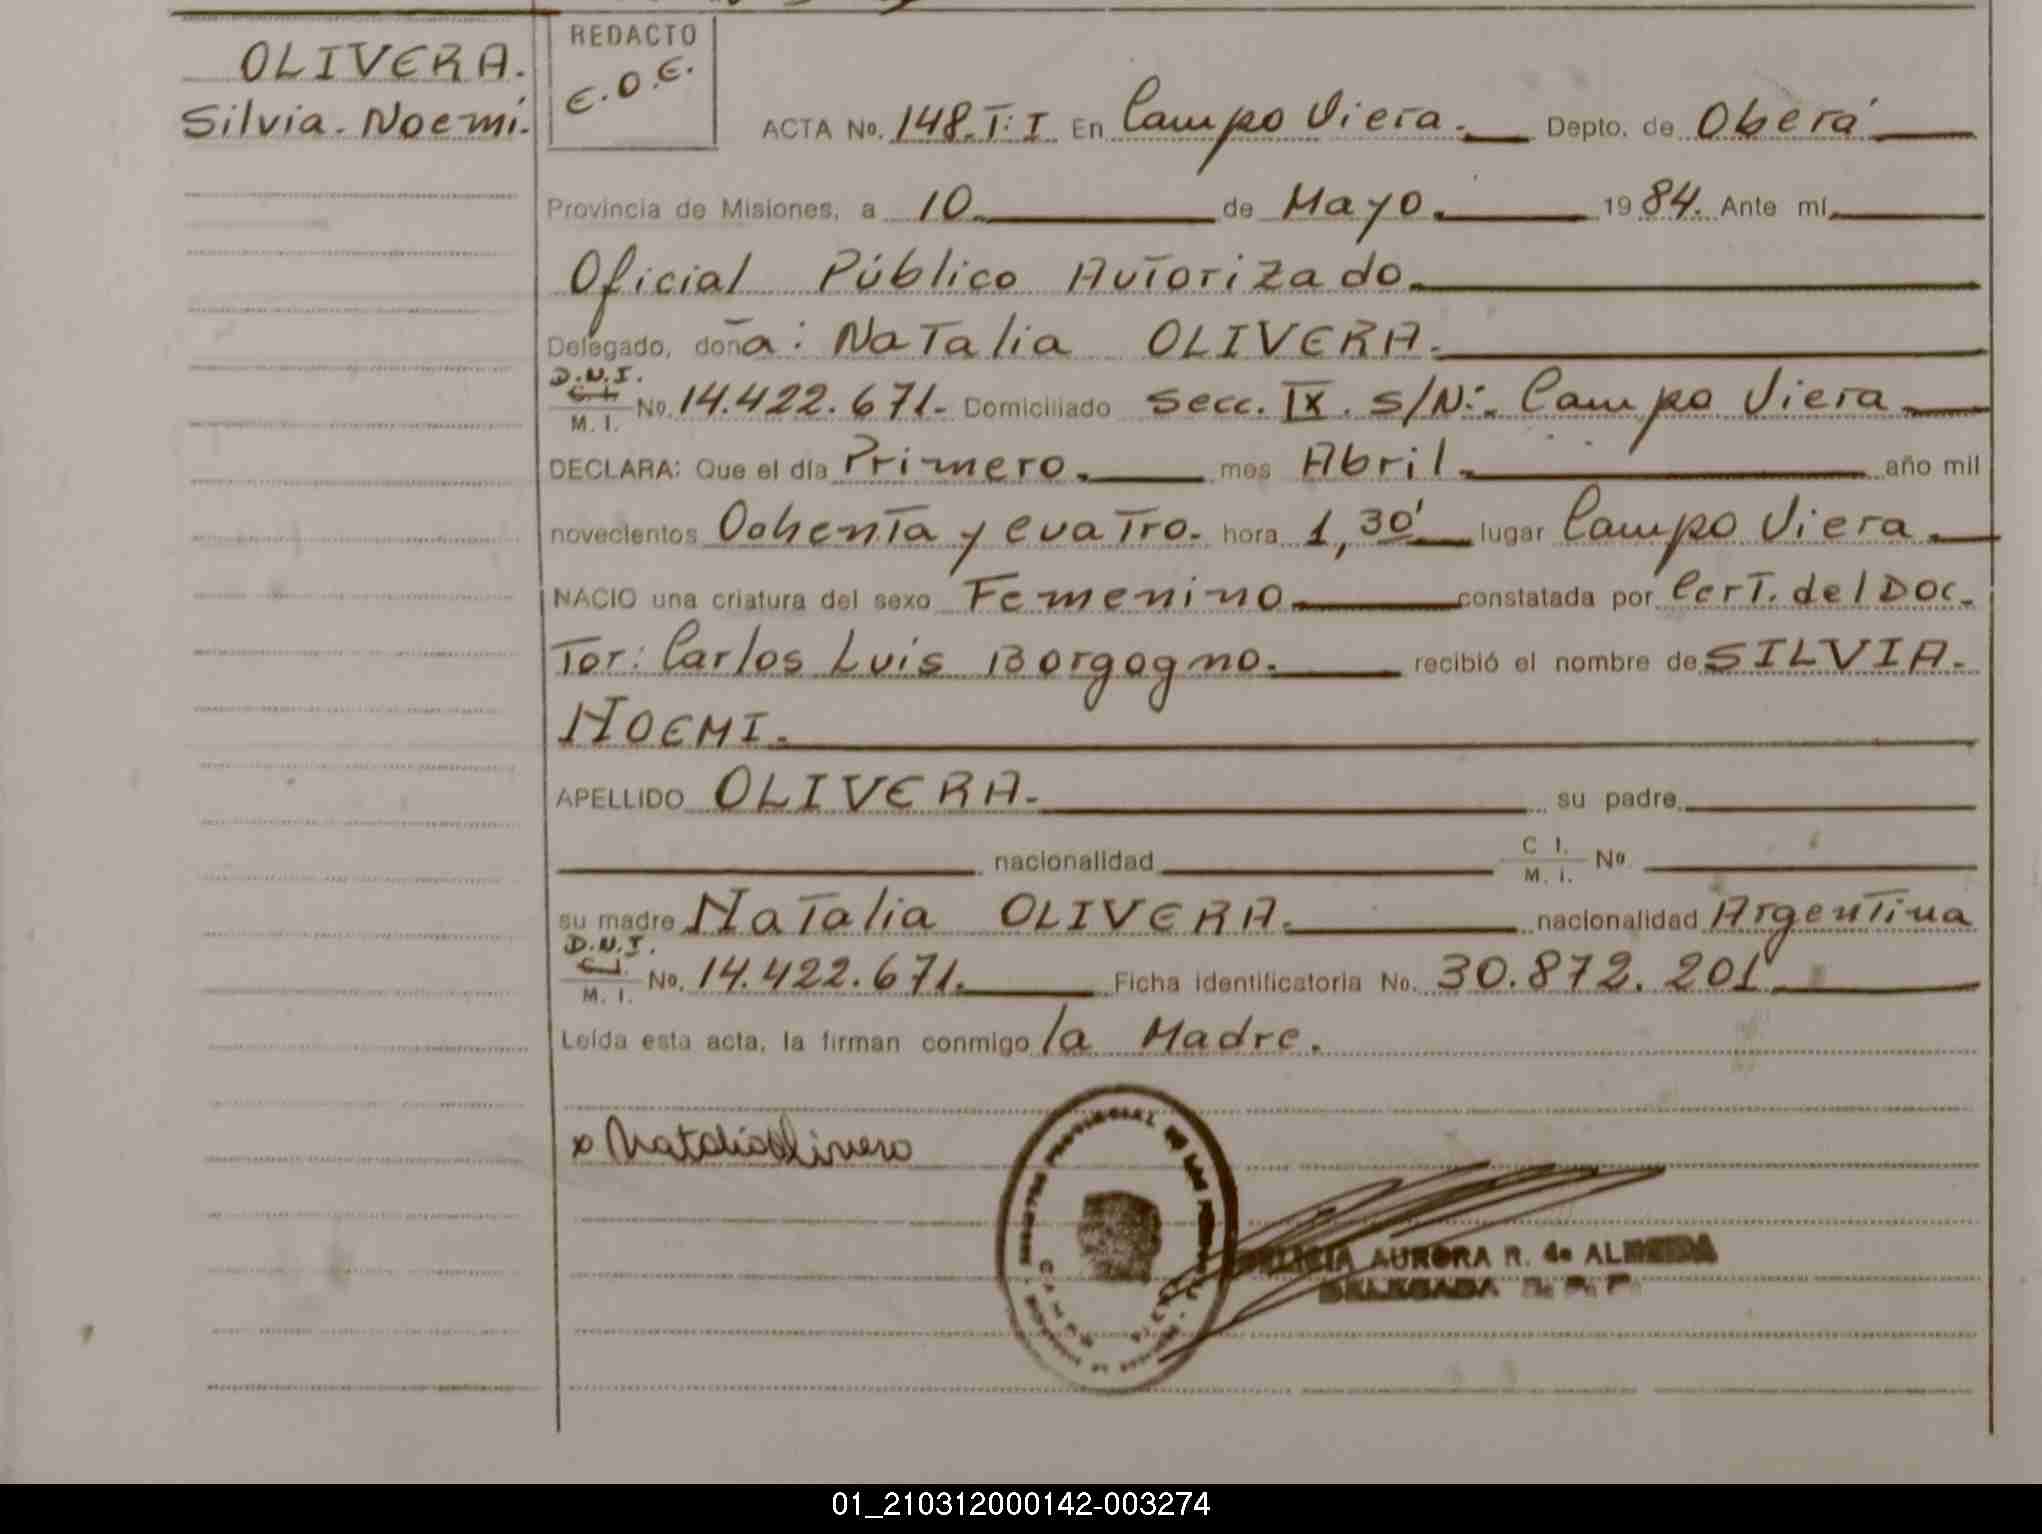 OLIVERA.
Silvia. Noemí.
REDACTO
E.O.E.
ACTA No. 148. T: I En Campo Viera. Depto. de Oberá
Provincia de Misiones, a 10 de Mayo. 1984. Ante mí,
Oficial Público Autorizado.
Delegado, doña: Natalia OLIVERA.
D.N.I.
M. I. No. 14.422.671. Domiciliado Secc. IX. S/N:. Campo Viera
DECLARA: Que el día Primero. mes Abril. año mil
novecientos Ochenta y cuatro. hora 1,30' lugar Campo Viera.
NACIO una criatura del sexo Femenino constatada por Cert. del Doc-
tor: Carlos Luis Borgogno. recibió el nombre de SILVIA.
NOEMI.
APELLIDO OLIVERA. su padre
nacionalidad C I. M. I. No.
su madre Natalia OLIVERA. nacionalidad Argentina
D.N.I.
M. I. No. 14.422.671. Ficha identificatoria No. 30.872.201
Leída esta acta, la firman conmigo la Madre.
x Natalia Olivera
PROVINCIAL DE LAS
AURORA R. de ALMEIDA
DELEGADA
01_210312000142-003274